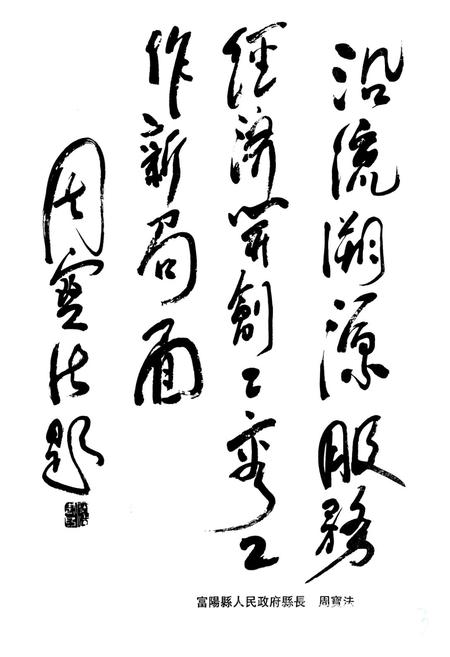 沿流溯源服務
經濟開創工商工
作新局面
周寶法題
富陽縣人民政府縣長　周寶法